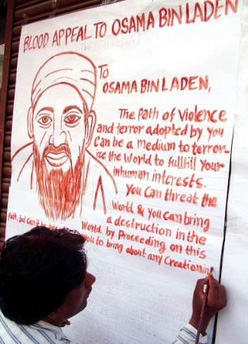 BLOOD APPEAL TO OSAMA BIN LADEN
TO
OSAMA BIN LADEN,
The Path of Violence
and terror adopted by you
Can be a medium to terror-
ise the World to fullfill Your
inhuman interests.
You Can threat the
World & you can bring
a destruction in the
World by Proceeding on this
Path, but Can't
you to bring about any Creation